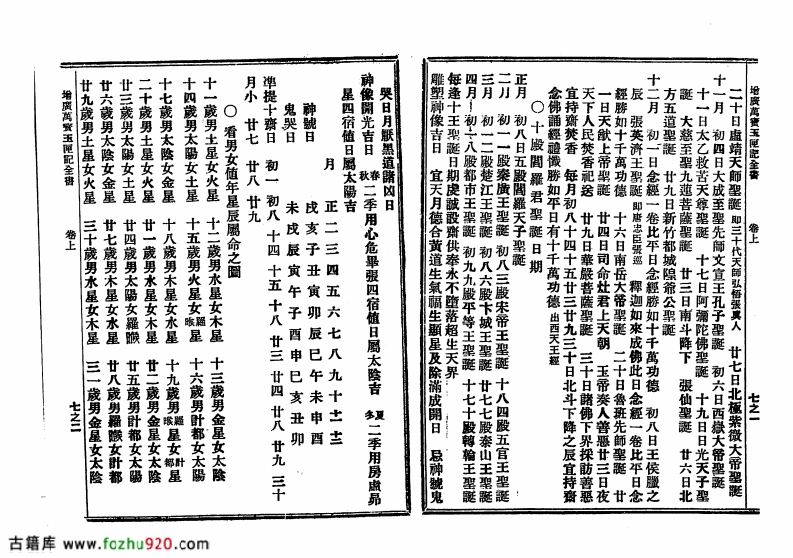 增廣萬寶玉匣記全書　卷上　七之一
二十日虛靖天師聖誕 即三十代天師弘悟張真人　廿七日北極紫微大帝聖誕
十一月　初四日大成至聖先師文宣王孔子聖誕　初六日西嶽大帝聖誕
十一日太乙救苦天尊聖誕　十七日阿彌陀佛聖誕　十九日日光天子聖
誕　大慈至聖九蓮菩薩聖誕　廿三日南斗降下　張仙聖誕　廿六日北
方五道聖誕　廿九日新竹都城隍爺公聖誕
十二月　初一日念經一卷比平日念經勝如十千萬功德　初八日王侯臘之
辰　張英濟王聖誕 即唐忠臣張巡　釋迦如來成佛此日念經一卷比平日念
經勝如十千萬功德　十六日南岳大帝聖誕　二十日魯班先師聖誕　廿
一日天猷上帝聖誕　廿四日司命灶君上天朝　玉帝奏人善惡廿三日夜
天下人民焚香祀送　廿九日華嚴菩薩聖誕　三十日諸佛下界採訪善惡
宜持齋焚香　每月初八十四十五廿三廿九三十日北斗下降之辰宜持齋
念佛誦經禮懺勝如平日有十千萬功德 出西天王經
〇十殿閻羅君聖誕日期
正月　初八日五殿閻羅天子聖誕
二月　初一一殿秦廣王聖誕　初八三殿宋帝王聖誕　十八四殿五官王聖誕
三月　初一二殿楚江王聖誕　初八六殿卞城王聖誕　廿七七殿泰山王聖誕
四月　初一八殿都市王聖誕　初九九殿平等王聖誕　十七十殿轉輪王聖誕
每逢十王聖誕日期虔誠設齋供奉永不墮落超生天界
雕塑神像吉日　宜天月德合黃道生氣福生顯星及除滿成開日　忌神號鬼
哭日月厭黑道諸凶日
神像開光吉日　春秋二季用心危畢張四宿值日屬太陰吉　夏冬二季用房虛昴
星四宿值日屬太陽吉
月　正二三四五六七八九十十一十二
神號日　戌亥子丑寅卯辰巳午未申酉
鬼哭日　未戌辰寅午子酉申巳亥丑卯
準提十齋日　初一初八十四十五十八廿三廿四廿八廿九三十
月小　廿七廿八廿九
〇看男女值年星辰屬命之圖
十一歲男土星女火星　十二歲男水星女木星　十三歲男金星女太陰
十四歲男太陽女土星　十五歲男火星女羅㬋　十六歲男計都女太陽
十七歲男太陰女金星　十八歲男木星女水星　十九歲男羅㬋星女計都星
二十歲男土星女火星　廿一歲男水星女木星　廿二歲男金星女太陰
廿三歲男太陽女土星　廿四歲男火星女羅㬋　廿五歲男計都女太陽
廿六歲男太陰女金星　廿七歲男木星女水星　廿八歲男羅㬋女計都
廿九歲男土星女火星　三十歲男水星女木星　三一歲男金星女太陰
增廣萬寶玉匣記全書　卷上　七之二
古籍库 www.fozhu920.com